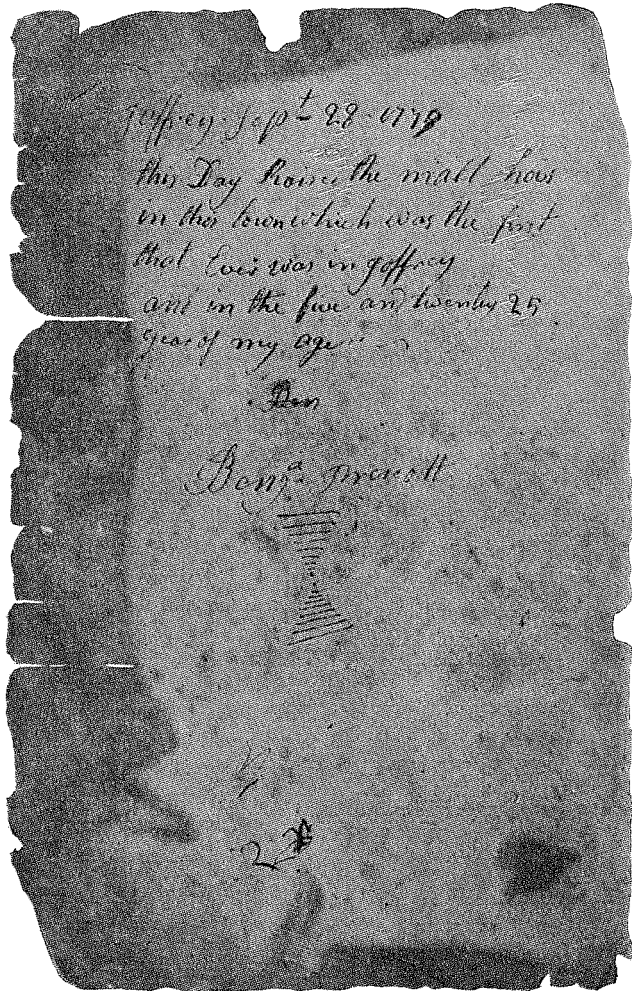 Joffrey Septt 28 1779
this Day Raised the malt hous
in this town which was the first
that Ever was in Joffrey
and in the five and twenty 25
year of my age
Ben
Benja Prescott